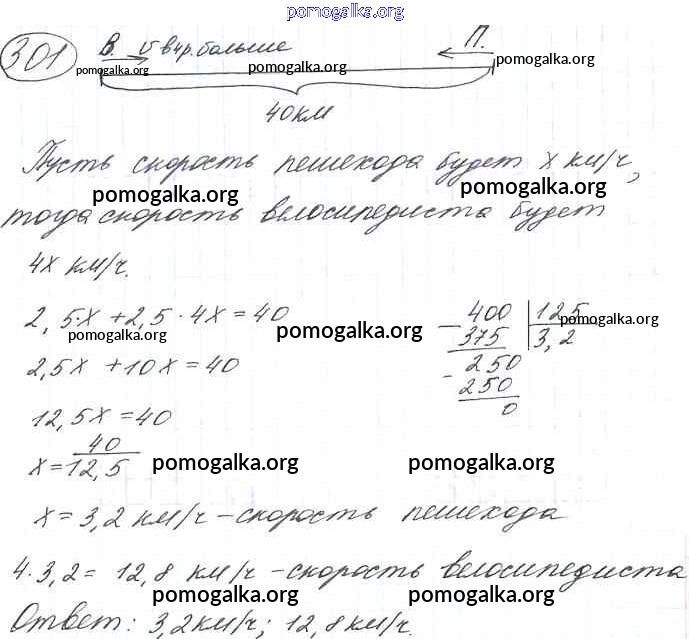 pomogalka.org
301 В. v в 4 р. больше П.
pomogalka.org pomogalka.org pomogalka.org
40 км
Пусть скорость пешехода будет х км/ч,
pomogalka.org pomogalka.org
тогда скорость велосипедиста будет
4х км/ч.
2,5·х + 2,5 · 4х = 40
400 | 125
pomogalka.org pomogalka.org pomogalka.org
375 3,2
2,5х + 10х = 40
250
250
0
12,5х = 40
х = 40/12,5
pomogalka.org pomogalka.org
х = 3,2 км/ч – скорость пешехода
4·3,2 = 12,8 км/ч – скорость велосипедиста
pomogalka.org pomogalka.org
Ответ: 3,2 км/ч; 12,8 км/ч.